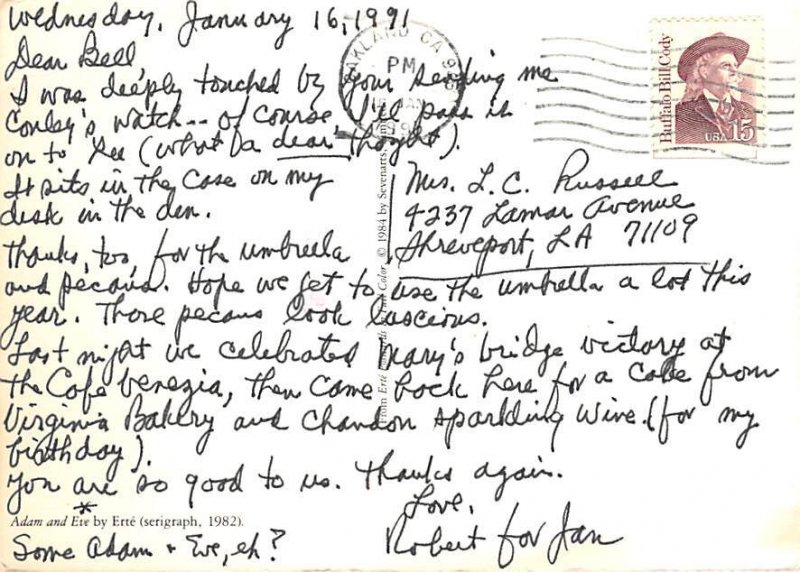 Wednesday, January 16, 1991
Dear Bell,
I was deeply touched by your sending me
Conley's watch -- of course I'll pass it
on to Lee (what a dear thought).
It sits in the case on my
desk in the den.
Thanks, too, for the umbrella
and pecans. Hope we get to use the umbrella a lot this
year. Those pecans look luscious.
Last night we celebrated Mary's bridge victory at
the Cafe Venezia, then came back here for a cake from
Virginia Bakery and Chandon sparkling wine. (for my
birthday).
You are so good to us. Thanks again.
Love,
Robert for Jan
*
Adam and Eve by Erté (serigraph, 1982).
Some Adam + Eve, eh?
Mrs. L. C. Russell
4237 Lamar Avenue
Shreveport, LA 71109
OAKLAND CA
PM
16 JAN
Buffalo Bill Cody
USA 15
From Erté © 1984 by Sevenarts